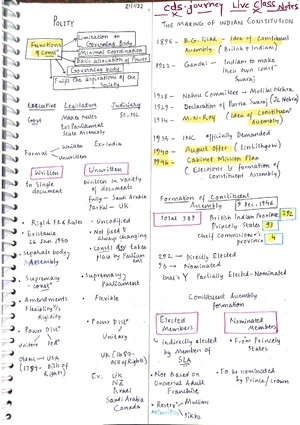 2/1/22
POLITY
Functions of const'n
Limitation on Governing Body
Minimal Coordination
Basic allocation of Power
Governing Body
Fulfils the aspirations of the Society
Executive Legislature Judiciary
Govt Makes rules SC, HC
State Assembly
Formal
Written Ex: India
Unwritten
Written Unwritten
In Single document
Written in variety of documents
fully - Saudi Arabia
UK
Rigid FR & Rules
Uncodified
Existence
26 Jan 1950
Not fixed & always changing
Separate body
Assembly
take place by Parliament
Supremacy
Supremacy Parliament
Amendments
Flexibility/s
Rigidity
Flexible
Power Dis'n
Unitary Fed
Power Dis'n
Unitary
USA
(1789 - Bill of Rights)
UK (1689 - Bill of Rights)
Ex: UK
NZ
Israel
Saudi Arabia
Canada
cds-journey Live Class Notes
THE MAKING OF INDIAN CONSTITUTION
1895 - B.G. Tilak - Idea of Constituent Assembly (British + Indian)
1922 - Gandhi - Indian to make their own const'n
Swaraj
1928 - Nehru Committee → Motilal Nehru
1929 - Declaration of Purna Swaraj (JL Nehru)
1934 - M.N. Roy (Idea of Constituent Assembly)
1935 - INC Officially Demanded
1940 - August Offer (Linlithgow)
1946 - Cabinet Mission Plan
(Elections & formation of Constituent Assembly)
Formation of Constituent Assembly
9 Dec. 1946
Total 389
British Indian Province 292
Princely States 93
Chief Commissioner's province 4
292 → Directly Elected
93 → Nominated
Partially Elected-Nominated
Constituent Assembly formation
Elected Members
Nominated Members
Indirectly elected by Member of SLA
From Princely States
Not Based on Universal Adult Franchise
To be nominated by Prince/Crown
Muslim
Minorities
Sikhs